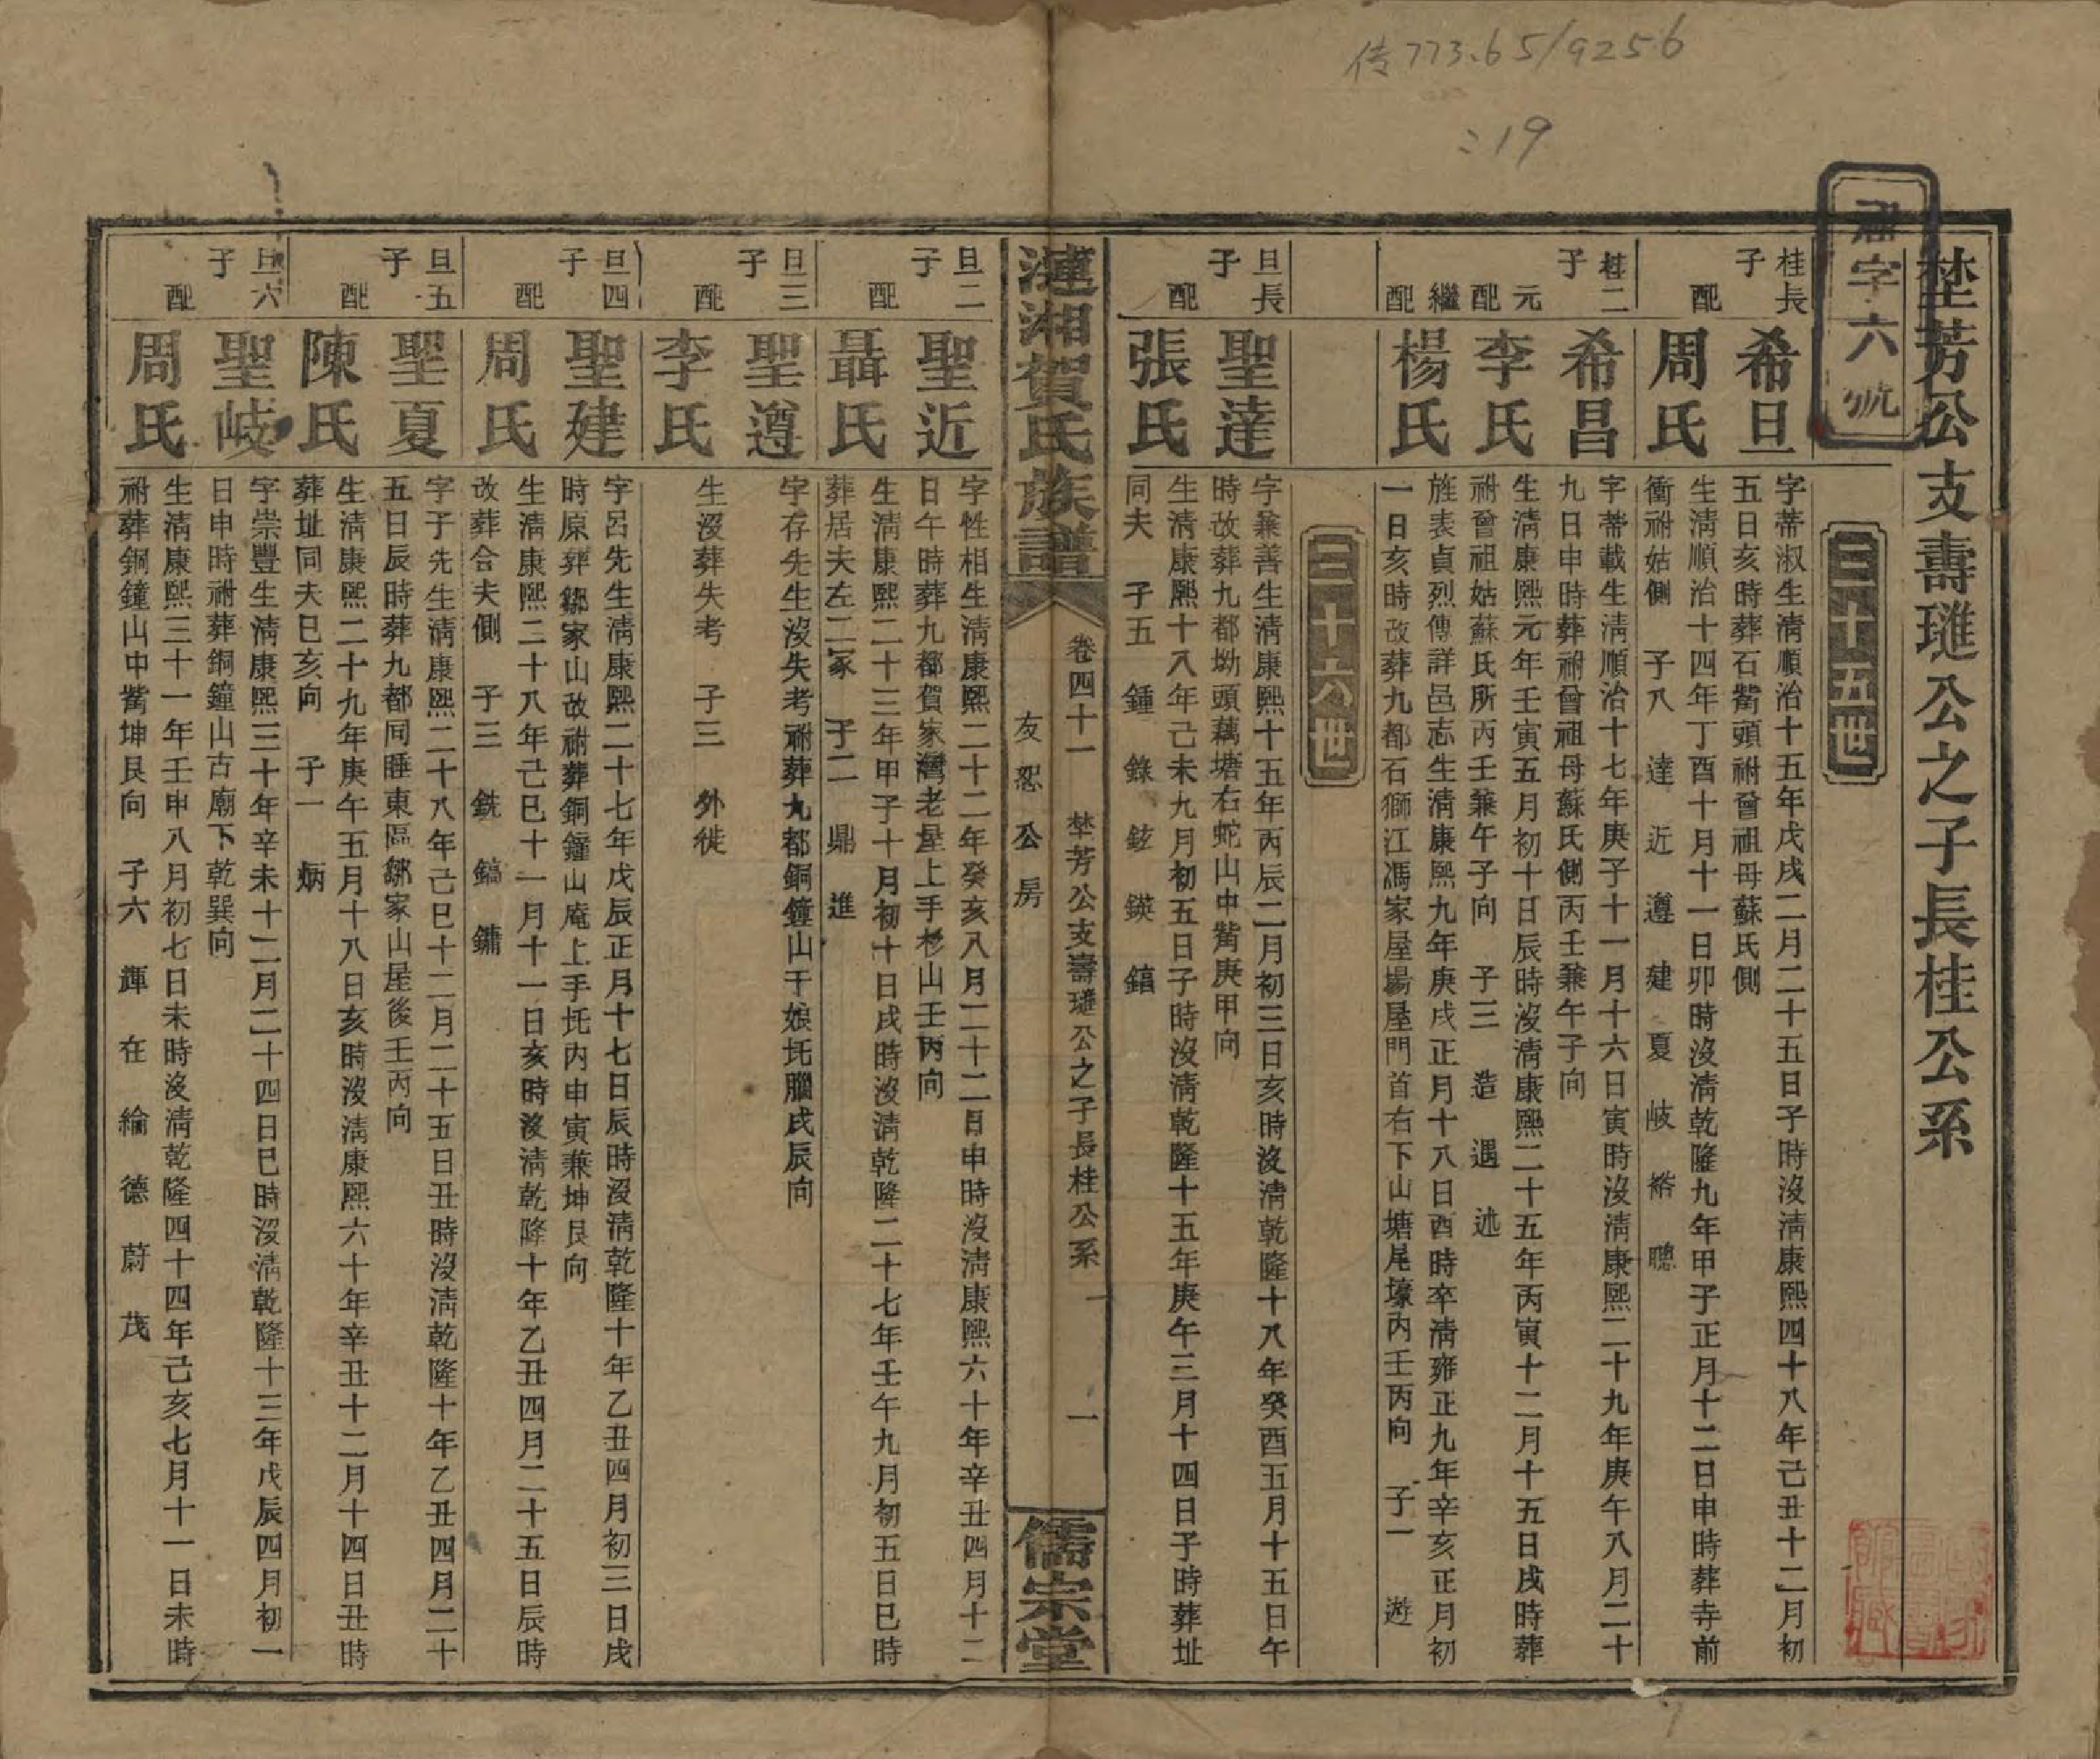 传773.65/9256
:19
埜芳公支壽璡公之子長桂公系
字六號
三十五世
桂長子
希旦
字蒂淑生淸順治十五年戊戌二月二十五日子時沒淸康熙四十八年己丑十二月初
五日亥時葬石觜頭祔曾祖母蘇氏側
配
周氏
生淸順治十四年丁酉十月十一日卯時沒淸乾隆九年甲子正月十二日申時葬寺前
衝祔姑側 子八 達 近 遵 建 夏 岐 裕 聰
桂二子
希昌
字蒂載生淸順治十七年庚子十一月十六日寅時沒淸康熙二十九年庚午八月二十
九日申時葬祔曾祖母蘇氏側丙壬兼午子向
元配
李氏
生淸康熙元年壬寅五月初十日辰時沒淸康熙二十五年丙寅十二月十五日戌時葬
祔曾祖姑蘇氏所丙壬兼午子向 子三 造 遇 述
繼配
楊氏
旌表貞烈傳詳邑志生淸康熙九年庚戌正月十八日酉時卒淸雍正九年辛亥正月初
一日亥時改葬九都石獅江馮家屋場屋門首右下山塘尾壕內壬丙向 子一 遊
三十六世
旦長子
聖達
字兼善生淸康熙十五年丙辰二月初三日亥時沒淸乾隆十八年癸酉五月十五日午
時故葬九都坳頭藕塘右蛇山中觜庚甲向
配
張氏
生淸康熙十八年己未九月初五日子時沒淸乾隆十五年庚午三月十四日子時葬址
同夫 子五 鍾 錄 鉉 鍈 鎬
漣湘賀氏族譜
卷四十一 埜芳公支壽璡公之子長桂公系 一
友恕公房
儒宗堂
旦二子
聖近
字性相生淸康熙二十二年癸亥八月二十二日申時沒淸康熙六十年辛丑四月十二
日午時葬九都賀家灣老屋上手杉山壬丙向
配
聶氏
生淸康熙二十三年甲子十月初十日戌時沒淸乾隆二十七年壬午九月初五日巳時
葬居夫左二冢 子二 鼎 進
旦三子
聖遵
字存先生沒失考祔葬九都銅鐘山干娘坉腦戌辰向
配
李氏
生沒葬失考 子三 外徙
旦四子
聖建
字呂先生淸康熙二十七年戊辰正月十七日辰時沒淸乾隆十年乙丑四月初三日戌
時原葬鄒家山改祔葬銅鐘山庵上手坉內申寅兼坤艮向
配
周氏
生淸康熙二十八年己巳十一月十一日亥時沒淸乾隆十年乙丑四月二十五日辰時
改葬合夫側 子三 銑 鎬 鏞
旦五子
聖夏
字子先生淸康熙二十八年己巳十二月二十五日丑時沒淸乾隆十年乙丑四月二十
五日辰時葬九都同睡東區鄒家山屋後壬丙向
配
陳氏
生淸康熙二十九年庚午五月十八日亥時沒淸康熙六十年辛丑十二月十四日丑時
葬址同夫巳亥向 子一 炳
旦六子
聖岐
字崇豐生淸康熙三十年辛未十二月二十四日巳時沒淸乾隆十三年戊辰四月初一
日申時祔葬銅鐘山古廟下乾巽向
配
周氏
生淸康熙三十一年壬申八月初七日未時沒淸乾隆四十四年己亥七月十一日未時
祔葬銅鐘山中觜坤艮向 子六 輝 在 綸 德 蔚 茂